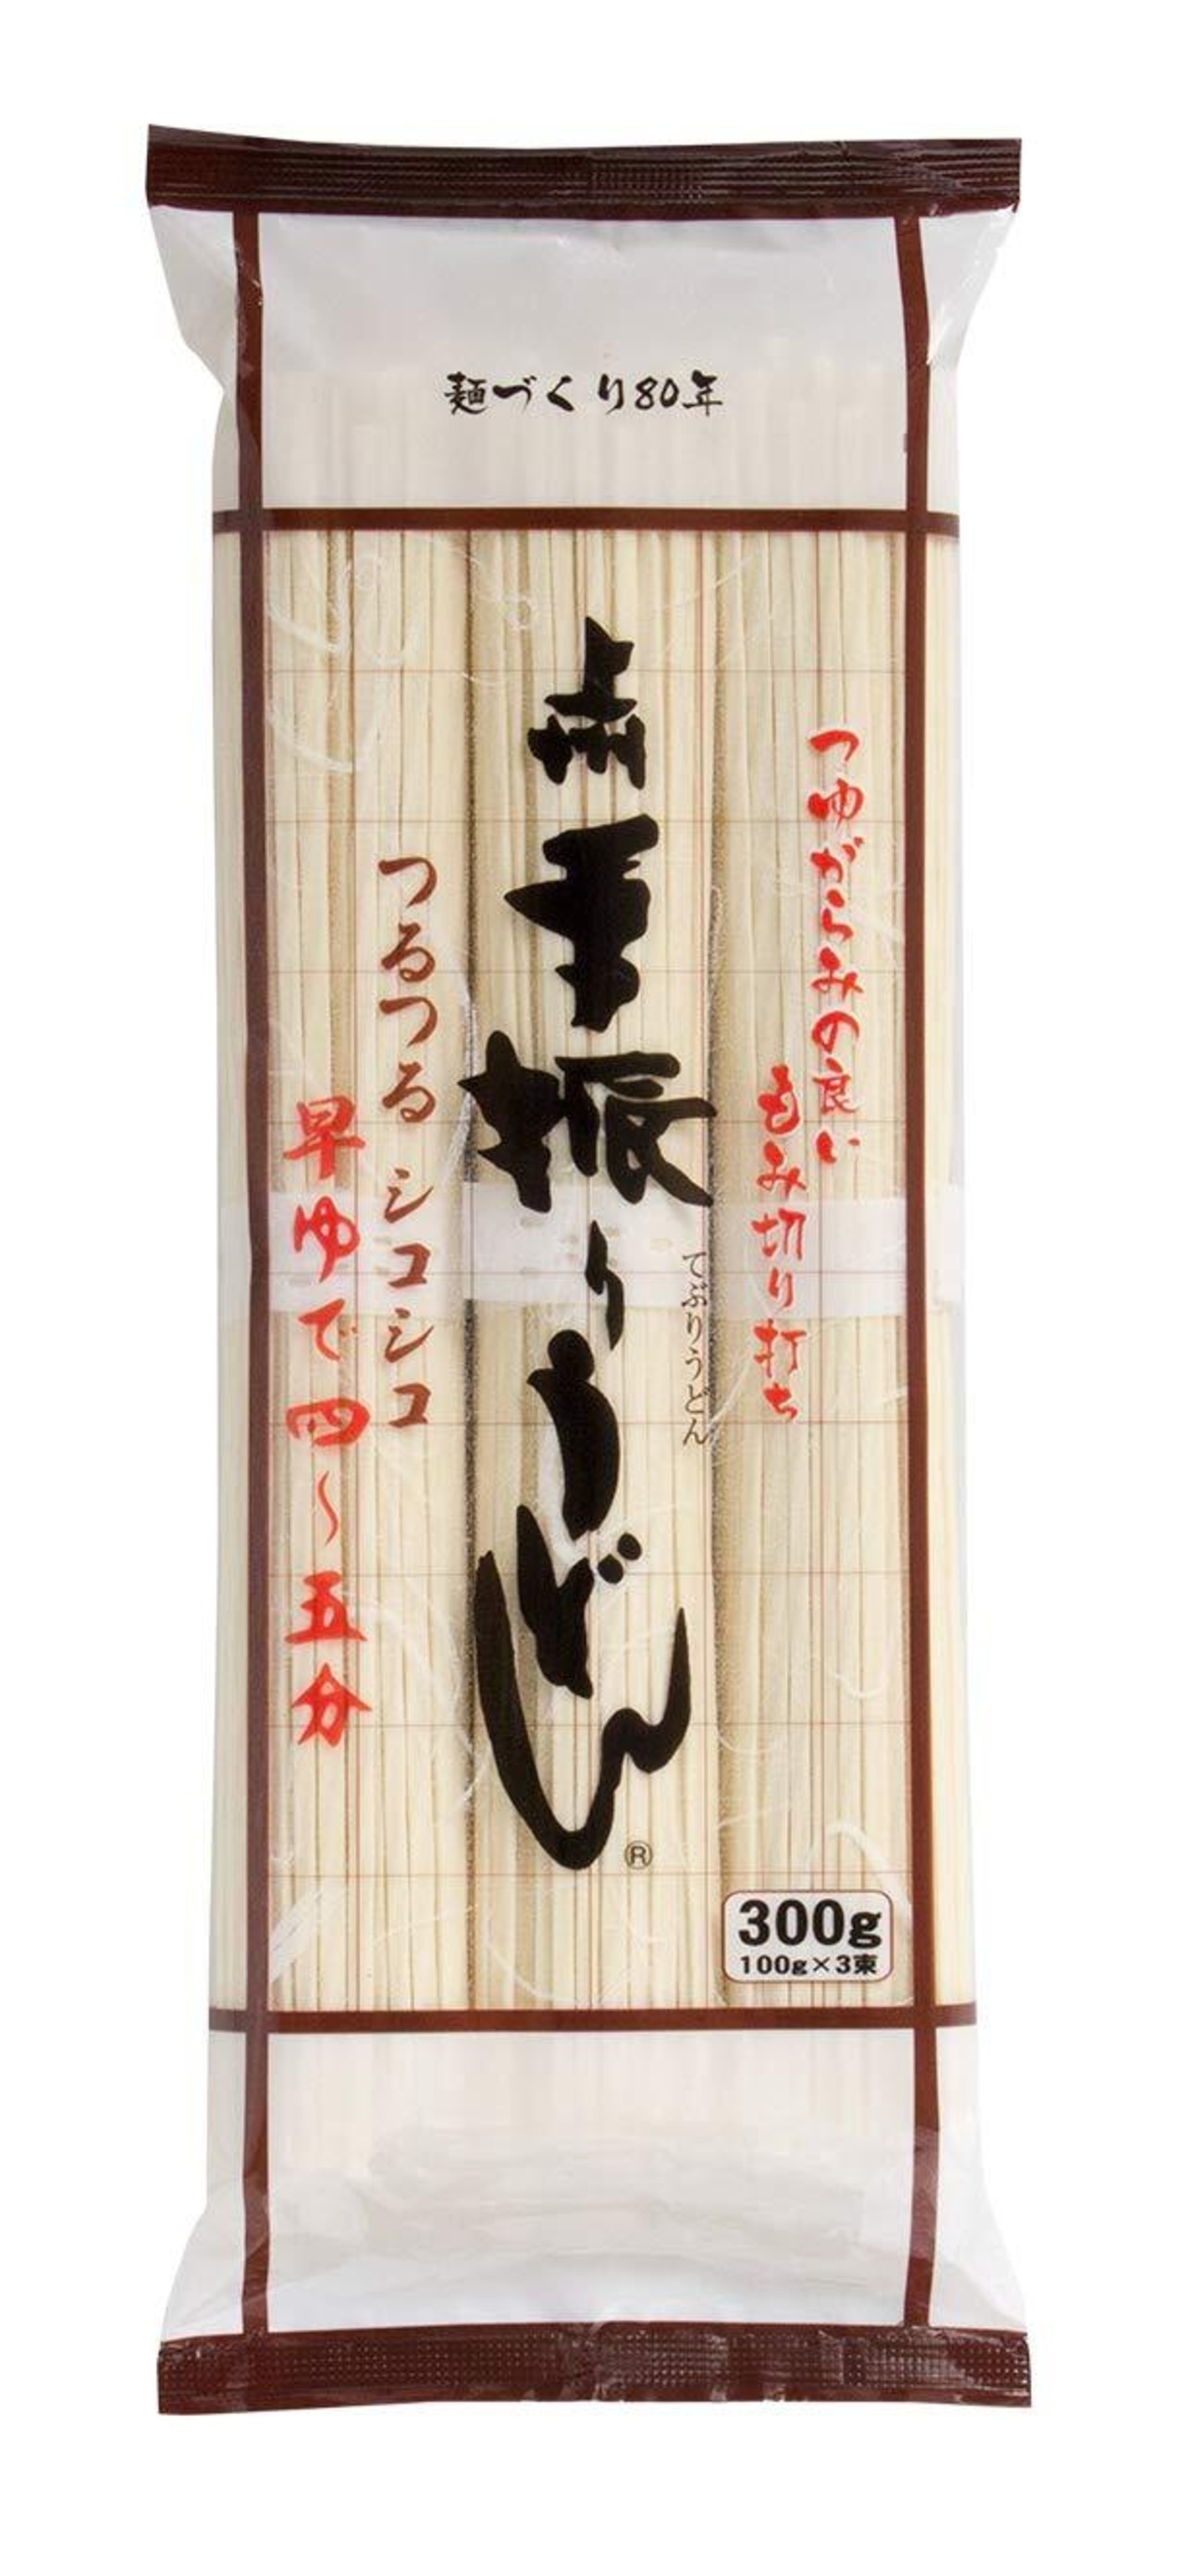 麺づくり80年
つゆがらみの良い
もみ切り打ち
てぶりうどん
上州手振りうどん
®
つるつるシコシコ
早ゆで四〜五分
300g
100g×3束